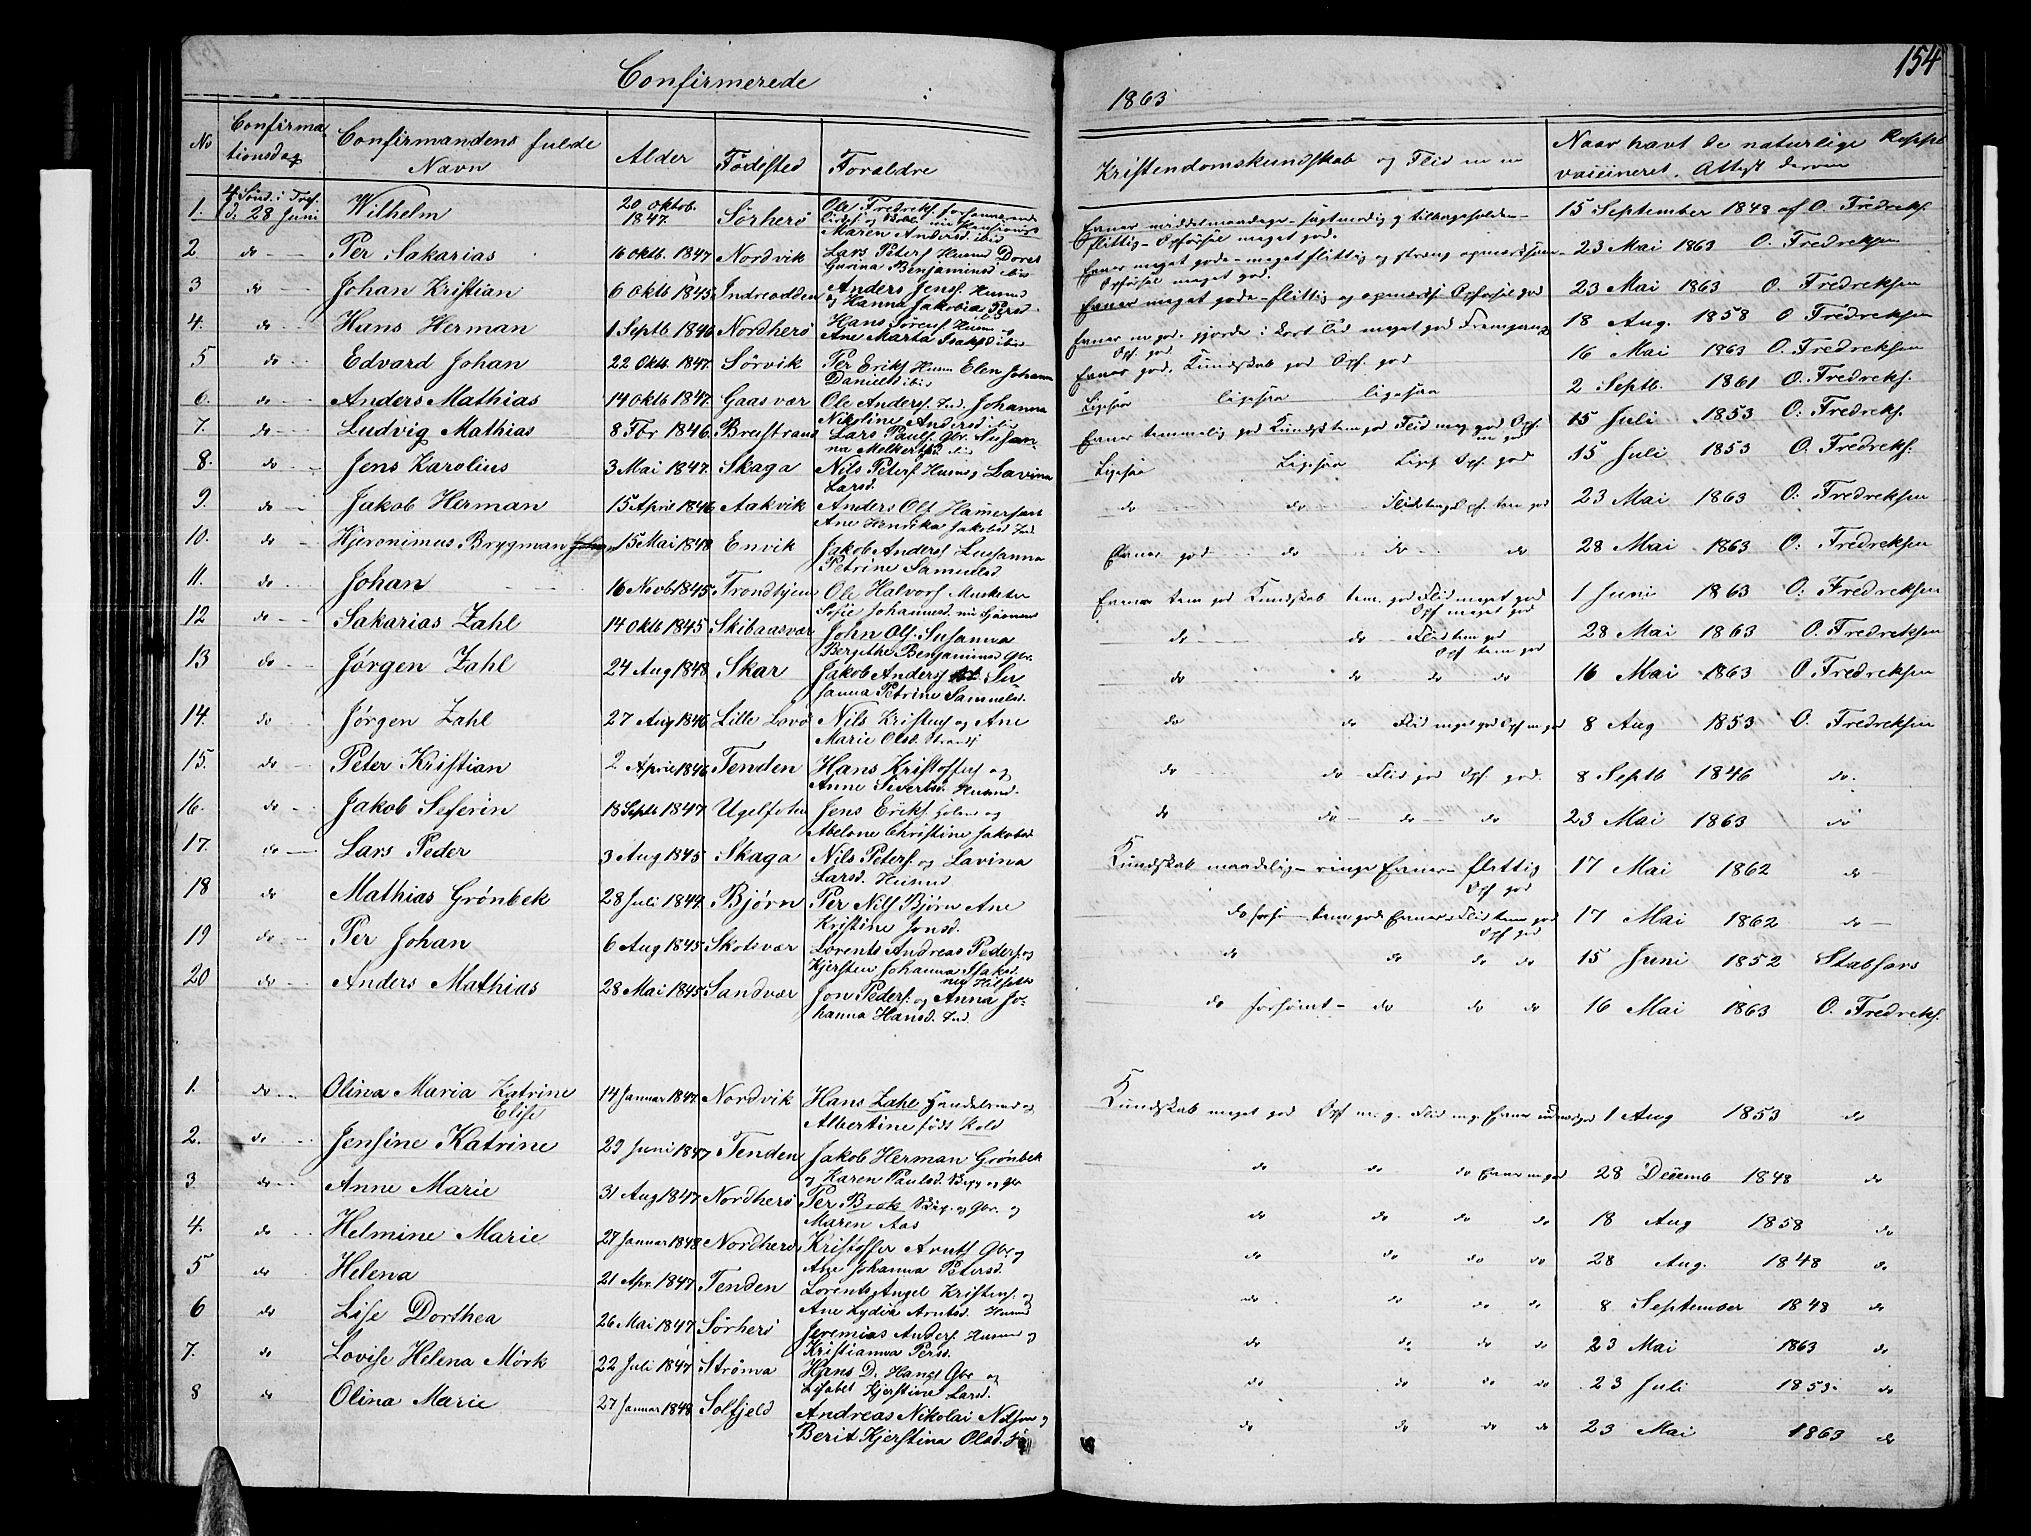 154
Confirmerede
1863
No Confirmationsdag Confirmandens fulde Navn Alder Födested Foraldre Kristendomskundskab og Flid Naar havt de naturlige Kopper vaccineret. Attest derom
1. 4 Sönd. i Tref. d. 28 Juni Wilhelm 20 Oktob. 1847. Sörherö Ole Fredreks. Maren Andersd. ibid 15 September 1848 af O. Fredreks.
flittig - Opförsel meget god.
2. do Per Sakarias 16 Oktb. 1847 Nordvik Lars Peters Husmd Doret Gurina Benjaminsd ibid 23 Mai 1863 O. Fredreksen
Evner meget gode - meget flittig og
Opförsel meget god.
3 do Johan Kristian 6 Oktb 1845 Indreodden Anders Jens. Husmd og Hanna Jakobia Persd. Evner meget gode - flittig og opmærks. Opförsel god 23 Mai 1863 O. Fredreksen
4. do Hans Herman 1 Septb 1846 Nordherö Hans Sörens Husm og Ane Marta Isaksd ibid Evner m god. gjorde i kort Tid meget god Fremgang Opf. god 18 Aug. 1858 O Fredreksen
5 do Edvard Johan 22 Oktb. 1847. Sörvik Per Eriks Husm Elen Johanna Danielsd. ibid Evner god, Kundskab god Opf. god 16 Mai 1863 O. Fredreksen
6. do Anders Mathias 14 Oktb 1847. Gaasvær Ole Anders. Ind. Johanna Nikoline Andersd. ibid Ligesaa ligesaa ligesaa 2 Septb. 1861 O. Fredreks.
7. do Ludvig Mathias 8 Fbr 1846. Breistrand Lars Pauls. Gbr. Susanna Melkersd. ibid Evner temmelig god Kundsk. tem god Flid meg god Opf. m god 15 Juli 1853 O. Fredreks.
8. do Jens Karolius 3 Mai 1847. Skaga Nils Peters Husm og Lavina Larsd. Ligesaa Ligesaa Opf. god 15 Juli 1853 O. Fredreks.
9. do Jakob Herman 15 April 1846 Aakvik Anders Ols Ane Henrika Jakobsd Ind do do Opf. tem god 23 Mai 1863 O. Fredreksen
10. do Hjeronimus Brygman 15 Mai 1848 Envik Jakob Anders Susanna Petrine Samuelsd Evner god do do do 28 Mai 1863 O. Fredreksen
11. do Johan 16 Novb 1845 Trondhjem Ole Halvors Sofie Johannesd. Evner tem god Kundskab tem. god Flid meget god Opf meget god 1 Juni 1863 O. Fredreksen
12 do Sakarias Zahl 14 Oktb 1845 Skibaasvær John Ols. Susanna Bergithe Benjaminsd Gbr. do do Flid tem god Opf tem god 28 Mai 1863 O. Fredreksen
13 do Jörgen Zahl 24 Aug 1848 Skar Jakob Anders Susanna Petrine Samuelsd. do do do do 16 Mai 1863 O Fredreksen
14. do Jörgen Zahl 27 Aug 1846 Lille Lovö Nils Kristens og Ane Marie Olsd. do do Flid meget god Opf m god 8 Aug 1853 O. Fredreksen
15. do Peter Kristian 2 April 1846 Tenden Hans Kristoffers og Anne Siverts. Husmd. do do Flid god Opf. god. 8 Septb 1846 do.
16. do Jakob Seferin 18 Septb 1847 Ugelfoten Jens Eriks og Abelone Christine Jakobsd do do do do 23 Mai 1863 do
17. do Lars Peder 3 Aug 1845 Skaga Nils Peters og Lavina Larsd. Husmd Kundskab maadelig - ringe Evner - flittig Opf god 17 Mai 1862 do
18 do Mathias Grönbek 28 Juli 1847 Björn Per Nils Björn Ane Kristine Jonsd. do tem gode Evner Flid tem god Opf god 17 Mai 1862 do
19 do Per Johan 6 Aug 1845 Skotsvær Lorents Andreas Peders. og Kjersten Johanna Isaksd. do do do do 15 Juni 1852 Stabfors
20 do Anders Mathias 28 Mai 1845 Sandvær Jon Peders. og Anna Johanna Hansd. Ind. do forsömt - do do do 16 Mai 1863 O. Fredreks.
1. do Olina Maria Katrine Elise 14 Januar 1847 Nordvik Hans Zahl Handelsmd og Albertine födt Kold Kundskab meget god Opf m. g. Flid m. g. Evner 1 Aug 1853 do
2. do Jensine Katrine 29 Juni 1847 Tenden Jakob Herman Grönbek og Karen Paulsd. do do do Evner m god 28 Decemb 1848 do
3. do Anne Marie 31 Aug 1847 Nordherö Per Brok og Gbr. og Maren Aas do do do do 18 Aug 1858 do
4. do Helmine Marie 27 Januar 1848 Nordherö Kristoffer Arnts Gbr og Ane Johanna Petersd. do do do do 28 Aug. 1848 do
5 do Helena 21 Apr. 1847 Tenden Lorents Angel Kristens. og Ane Lydia Arntsd. Husmd do do do do 8 September 1848 do
6 do Lise Dorthea 26 Mai 1847 Sörherö Jeremias Anders. Husmd og Kristianna Persd. do do do do 23 Mai 1863 do
7. do Lovise Helena Mörk 22 Juli 1847 Ströma Hans D. Hans Gbr og Lisabet Kjerstine Larsd. do do do do 23 Juli 1853. do
8 do Olina Marie 27 Januar 1848 Solfjeld Andreas Nikolai Nilsen og Berit Kjerstina Olsd. do do do do 23 Mai 1863 do